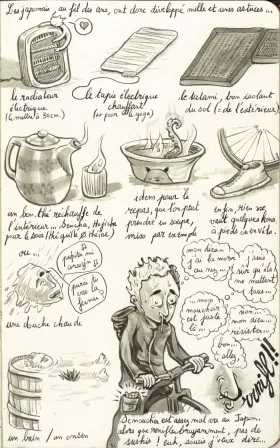 Les japonais, au fil des ans, ont donc développé mille et unes astuces...
le radiateur
électrique
(à mettre à 30cm)
le tapis électrique
chauffant
(et pour le yoga)
le tatami, bon isolant
du sol (= de l'extérieur)
un bon thé réchauffe de
l'intérieur... Sencha, Hojicha
pour le soir (thé grillé 0 théine)
idem pour le
repas, que l'on peut
prendre en soupe,
miso par exemple
enfin, rien ne
vaut quelques kms
à pieds ou en vélo.
ou...
une douche chaude
un bain / un onsen
mon dieu...
j'ai la morve
au nez,
... mon
mouchoir
est juste
là...
non...
mon dieu...
résister...
bon...
allez
Se moucher est assez mal vu au Japon.
alors que renifler bruyamment, pas de
soucis ! euh, sinon j'veux dire...